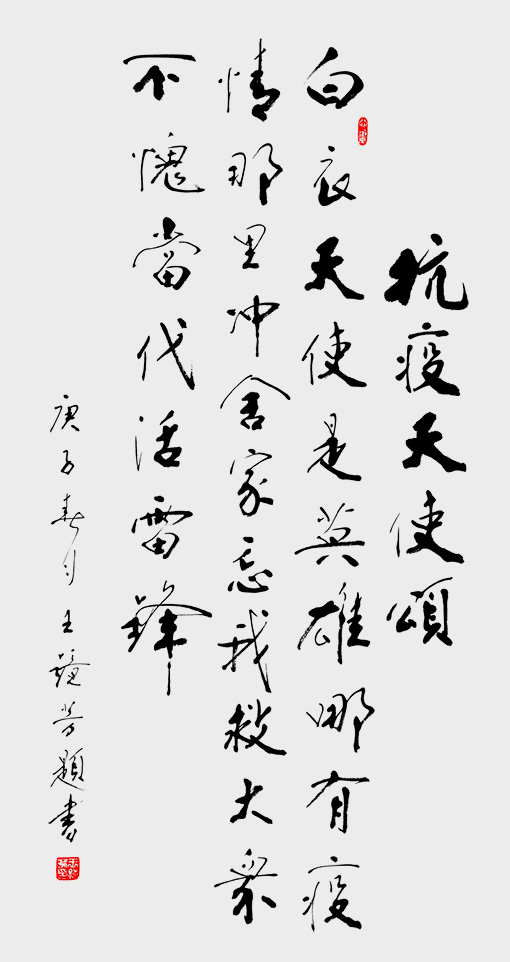 抗疫天使頌
白衣天使是英雄哪有疫
情那里冲舍家忘我救大衆
不愧當代活雷鋒
庚子春月王芳題書